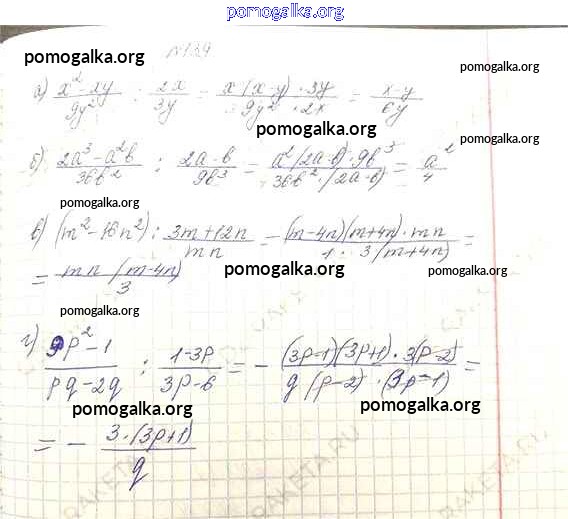 pomogalka.org
pomogalka.org
№139
pomogalka.org
а) x² - xy / 9y² : 2x / 3y = x(x-y) · 3y / 9y² · 2x = x-y / 6y
pomogalka.org
pomogalka.org
б) 2a³ - a²b / 36b² : 2a-b / 9b³ = a²(2a-b) · 9b³ / 36b² · (2a-b) = a² / 4
pomogalka.org
в) (m² - 16n²) : 3m+12n / mn = (m-4n)(m+4n) · mn / 1 · 3(m+4n) =
= mn(m-4n) / 3
pomogalka.org
pomogalka.org
pomogalka.org
г) 9p² - 1 / pq - 2q : 1-3p / 3p-6 = - (3p-1)(3p+1) · 3(p-2) / q(p-2) · (3p-1) =
pomogalka.org
pomogalka.org
= - 3·(3p+1) / q
RAKETA.RU
RAKETA.RU